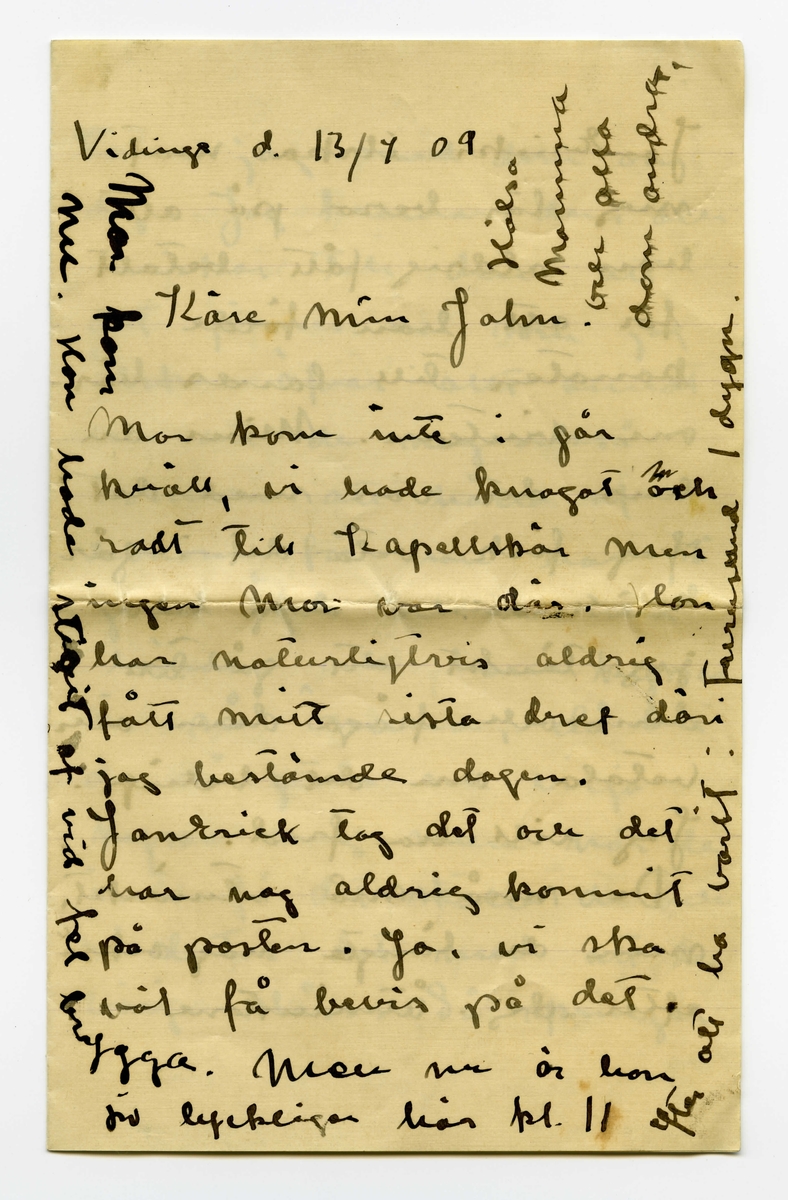 Vidinge d. 13/7 09
Käre min John.
Mor kom inte i går
kväll, vi hade knogat och
rott till Kapellskär men
ingen Mor var där. Hon
har naturligtvis aldrig
fått mitt sista bref däri
jag bestämde dagen.
JanErick tog det och det
har nog aldrig kommit
på posten. Ja, vi ska
väl få bevis på det.
Men nu är hon
så lyckligen här kl. 11
efter att ha varit i Furusund 1 dygn.
Mor kom
nu. Hon hade stigit af vid fel brygga.
Hälsa
Mamma
och alla
dom andra.